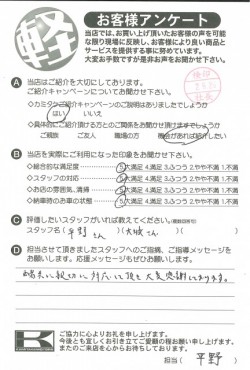 軽
お客様アンケート
当店では、お買い上げ頂いたお客様の声を可能
な限り現場に反映し、お客様により良い商品と
サービスを提供する事に努めています。
大変お手数ですが是非お声をお聞かせ下さい。
A 当店はご紹介を大切にしております。
ご紹介キャンペーンについてお聞かせ下さい。
◇カミタケご紹介キャンペーンのご説明はありましたでしょうか
はい いいえ
◇具体的にご紹介頂ける方とのご関係をお聞かせ頂けますでしょうか
ご親族 ご友人 職場の方 機会があれば紹介したい
B 当店を実際にご利用になった印象をお聞かせ下さい。
◇総合的な満足度 5.大満足 4.満足 3.ふつう 2.やや不満 1.不満
◇スタッフの対応 5.大満足 4.満足 3.ふつう 2.やや不満 1.不満
◇お店の雰囲気、清掃 5.大満足 4.満足 3.ふつう 2.やや不満 1.不満
◇納車時のお車の状態 5.大満足 4.満足 3.ふつう 2.やや不満 1.不満
C 評価したいスタッフがいれば教えてください。
スタッフ名( 平野さん )( 大城さん )
D 担当させて頂きましたスタッフへのご指摘、ご指導メッセージを
お願いします。応援メッセージもぜひお願いします。
皆共に親切に対応して頂き大変感謝しております。
K
ご協力に心よりお礼を申し上げます。
今後とも宜しくお引き立てご愛顧の程お願い申し上げます。
またのご来店を心からお待ちしております。
担当( 平野 )